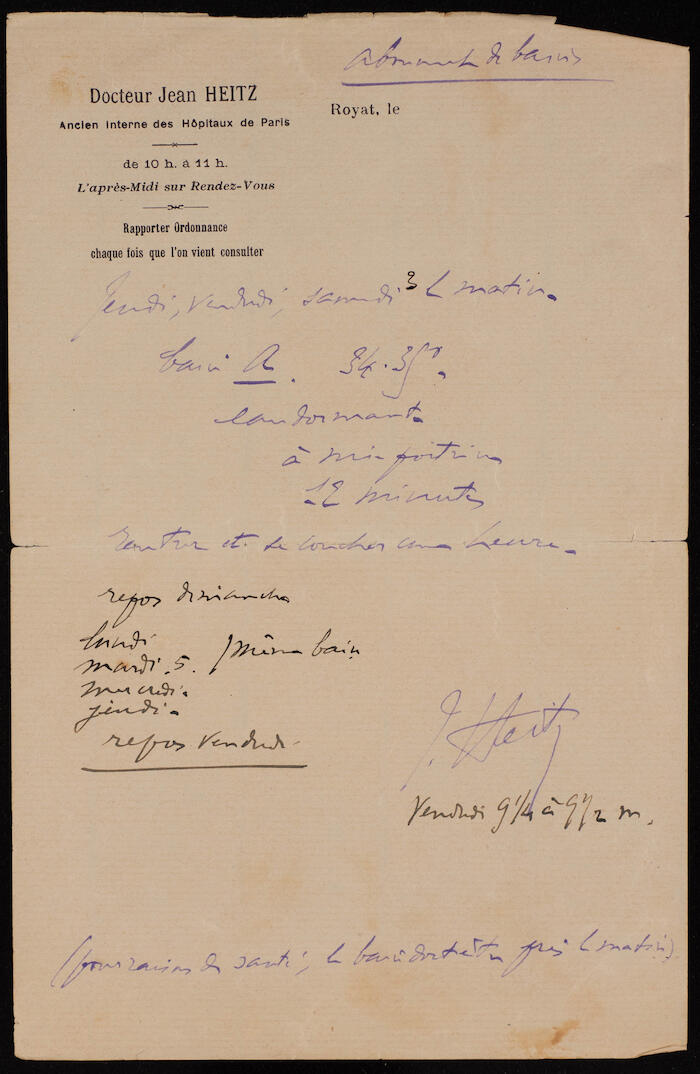 abonnement de bains
Docteur Jean HEITZ
Ancien Interne des Hôpitaux de Paris
de 10 h. à 11 h.
L'après-Midi sur Rendez-Vous
Rapporter Ordonnance
chaque fois que l'on vient consulter
Royat, le
Jeudi, vendredi, samedi 3 le matin.
bain A. 34.35°
eau dormante
à mi-poitrine
12 minutes
rentrer et se coucher une heure.
repos dimanche
lundi
mardi.5. / même bain
mercredi.
jeudi.
repos vendredi.
J. Heitz
Vendredi 9 1/4 à 9 1/2 m.
(pour raisons de santé, le bain doit être pris le matin).